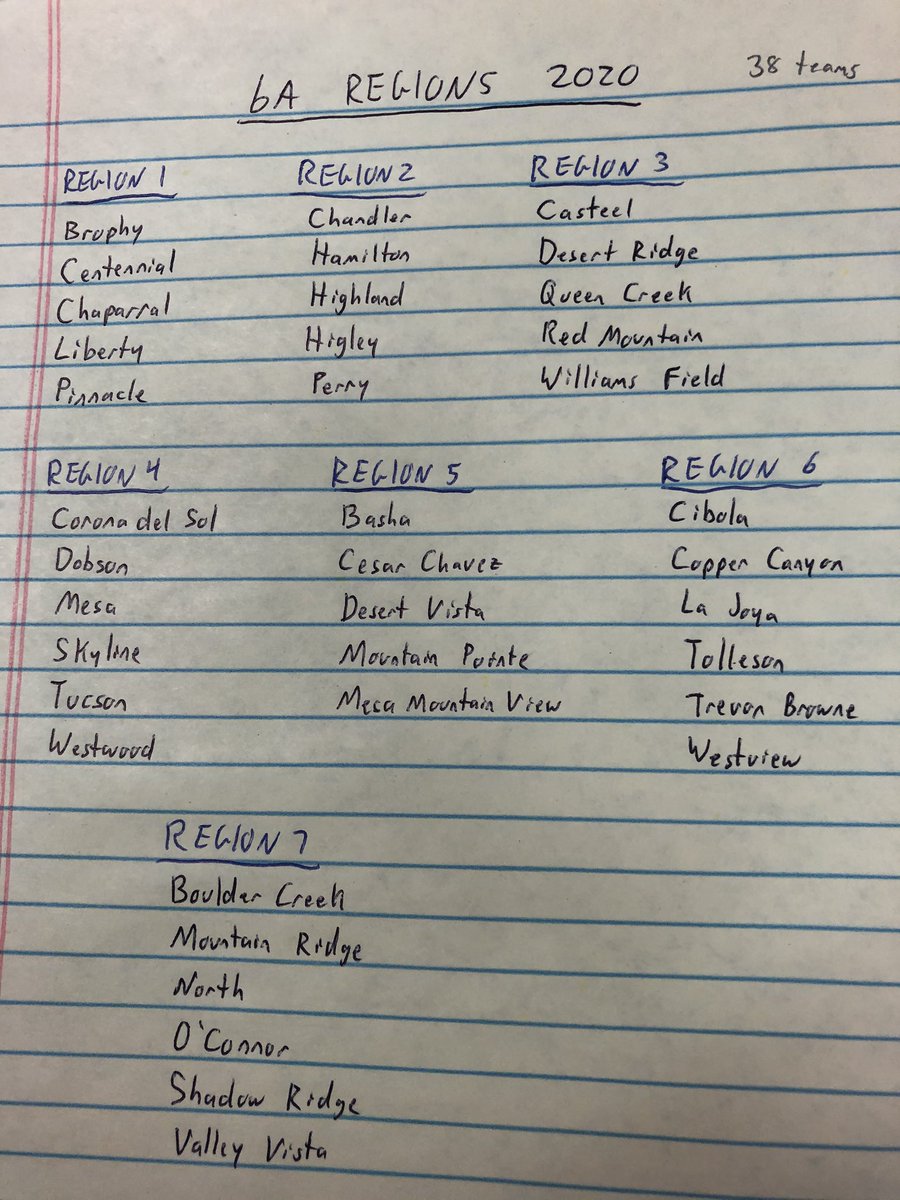 6A REGIONS 2020
38 teams
REGION 1
Brophy
Centennial
Chaparral
Liberty
Pinnacle
REGION 2
Chandler
Hamilton
Highland
Higley
Perry
REGION 3
Casteel
Desert Ridge
Queen Creek
Red Mountain
Williams Field
REGION 4
Corona del Sol
Dobson
Mesa
Skyline
Tucson
Westwood
REGION 5
Basha
Cesar Chavez
Desert Vista
Mountain Pointe
Mesa Mountain View
REGION 6
Cibola
Copper Canyon
La Joya
Tolleson
Trevor Browne
Westview
REGION 7
Boulder Creek
Mountain Ridge
North
O'Connor
Shadow Ridge
Valley Vista